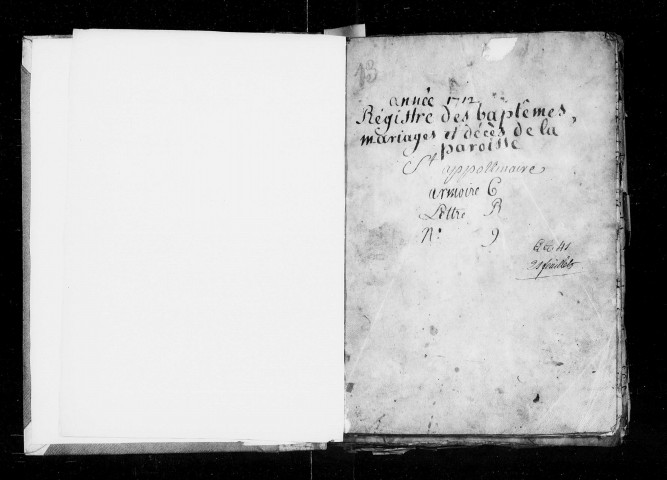 13
année 1712
Régistre des baptêmes,
mariages et décès de la
paroisse
St appollinaire
armoire C
Lettre R
N.° 9
41
feuillets